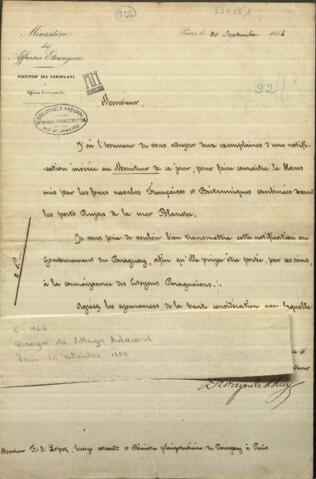 Ministère
des
Affaires Etrangères
DIRECTION DES CONSULATS
(166)
Paris, le 30 Septembre 1854
92
Monsieur,
BIBLIOTHECA NACIONAL
RIO DE JANEIRO
J'ai l'honneur de vous envoyer deux exemplaires d'une notifi-
cation insérée au Moniteur de ce jour, pour faire connaître le blocus
mis par les forces navales Françaises et Britanniques combinées devant
les ports Russes de la mer Blanche.
Je vous prie de vouloir bien transmettre cette notification au
Gouvernement du Paraguay, afin qu'elle puisse être portée, par ses soins,
à la connaissance des Citoyens Paraguaiens.
Agréez, les assurances de la haute considération avec laquelle
C 466
Drouyn de Lhuys Edouard
Paris 30 setiembre 1854
et
Drouyn de Lhuys
Monsieur F. S. Lopez, Envoyé extraord. et Ministre plénipotentiaire du Paraguay à Paris